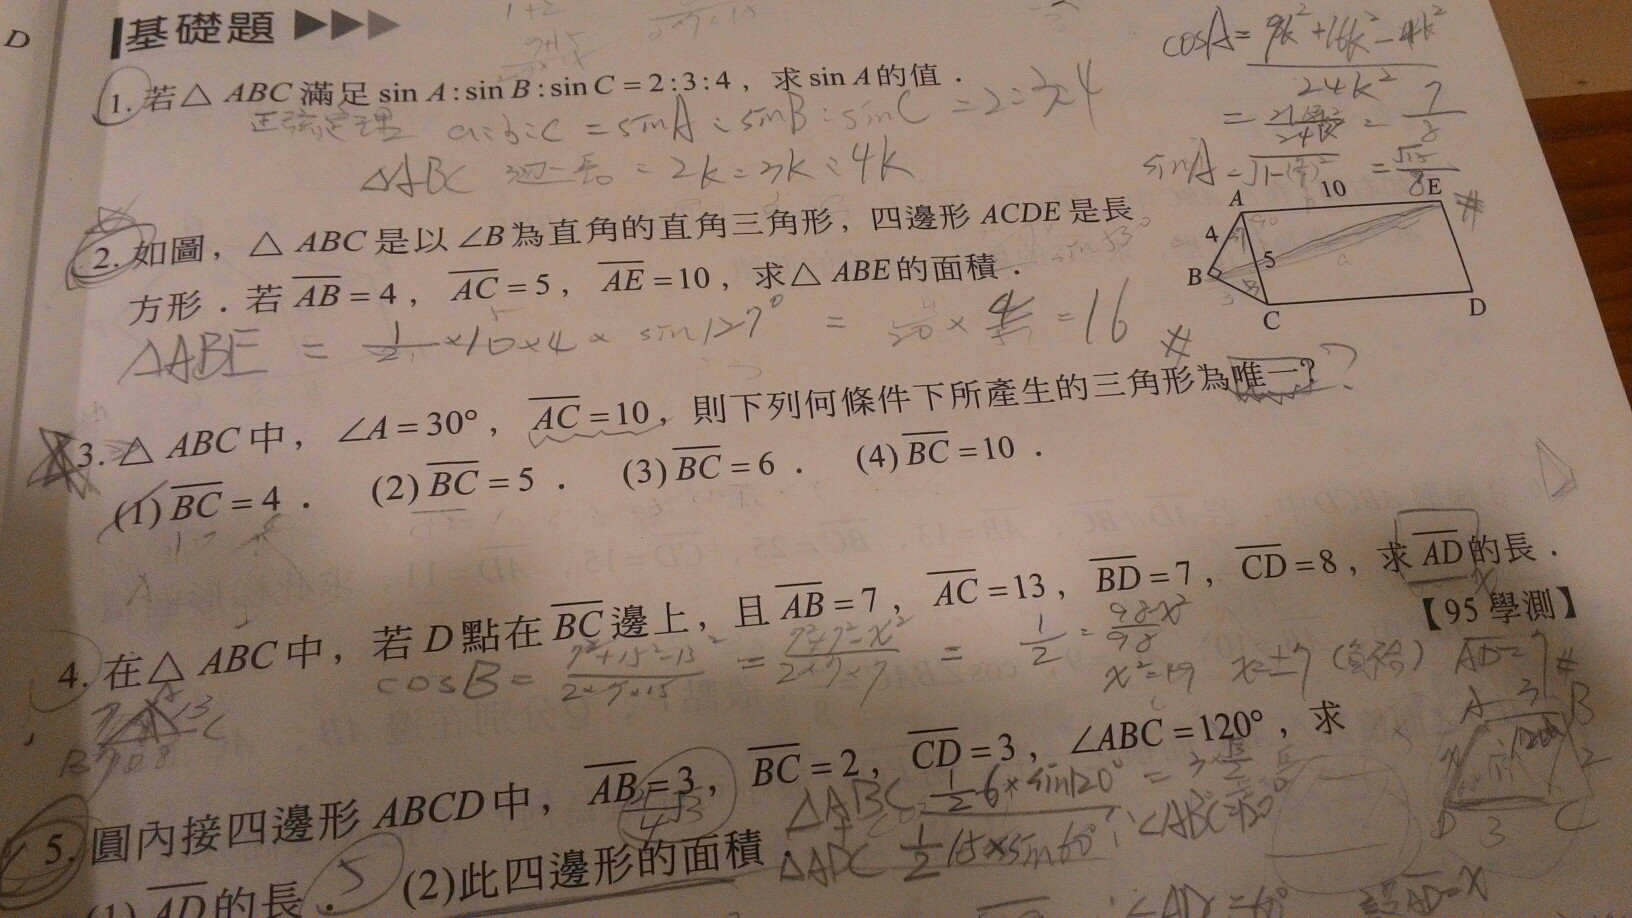 D
基礎題
1. 若△ ABC 滿足 sin A : sin B : sin C = 2 : 3 : 4，求 sin A 的值．
正弦定理 a:b:c = sinA : sinB : sinC = 2:3:4
△ABC 邊長 = 2k : 3k : 4k
cosA = 9k²+16k²-4k² / 24k²
= 7/8
sinA = √1-(7/8)² = √15/8
2. 如圖，△ ABC 是以 ∠B 為直角的直角三角形，四邊形 ACDE 是長
方形．若 AB = 4，AC = 5，AE = 10，求△ ABE 的面積．
A 10 E
4
5
B
3
C
D
△ABE = 1/2 ×10×4× sin127° = = 16
3. △ ABC 中，∠A = 30°，AC = 10，則下列何條件下所產生的三角形為唯一？
(1) BC = 4． (2) BC = 5． (3) BC = 6． (4) BC = 10．
4. 在△ ABC 中，若 D 點在 BC 邊上，且 AB = 7，AC = 13，BD = 7，CD = 8，求 AD 的長．
【95 學測】
cosB = 7²+15²-13² / 2×7×15 = 7²+7²-x² / 2×7×7 = 1/2 = 98-x² / 98
x²=49 x=±7 (負不合) AD=7
5. 圓內接四邊形 ABCD 中，AB = 3，BC = 2，CD = 3，∠ABC = 120°，求
(1) AD 的長． 5 (2)此四邊形的面積
△ABC = 1/2 6×sin120°
△ADC 1/2 15×sin60°
∵∠ABC=120
設AD=x
A 3 B
2
D 3 C